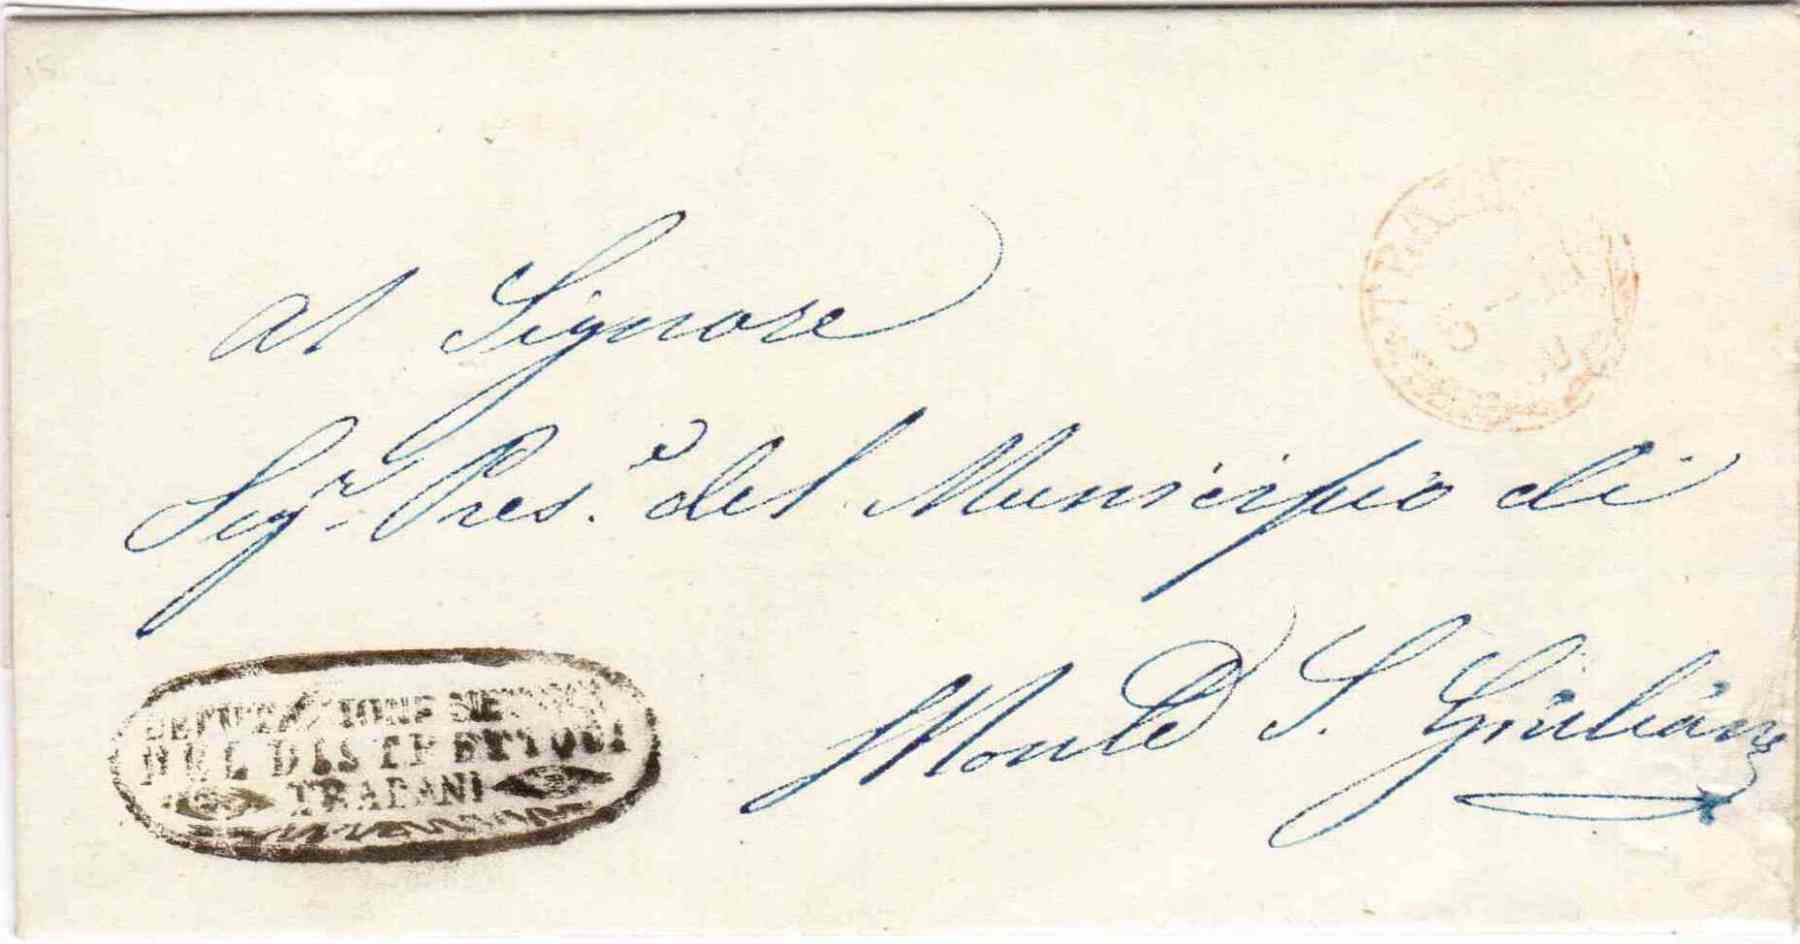 al Signore
Sigr. Pres.e del Municipio di
Monte S. Giuliano
DEPUTAZIONE
NEL DISTRETTO DI
TRAPANI